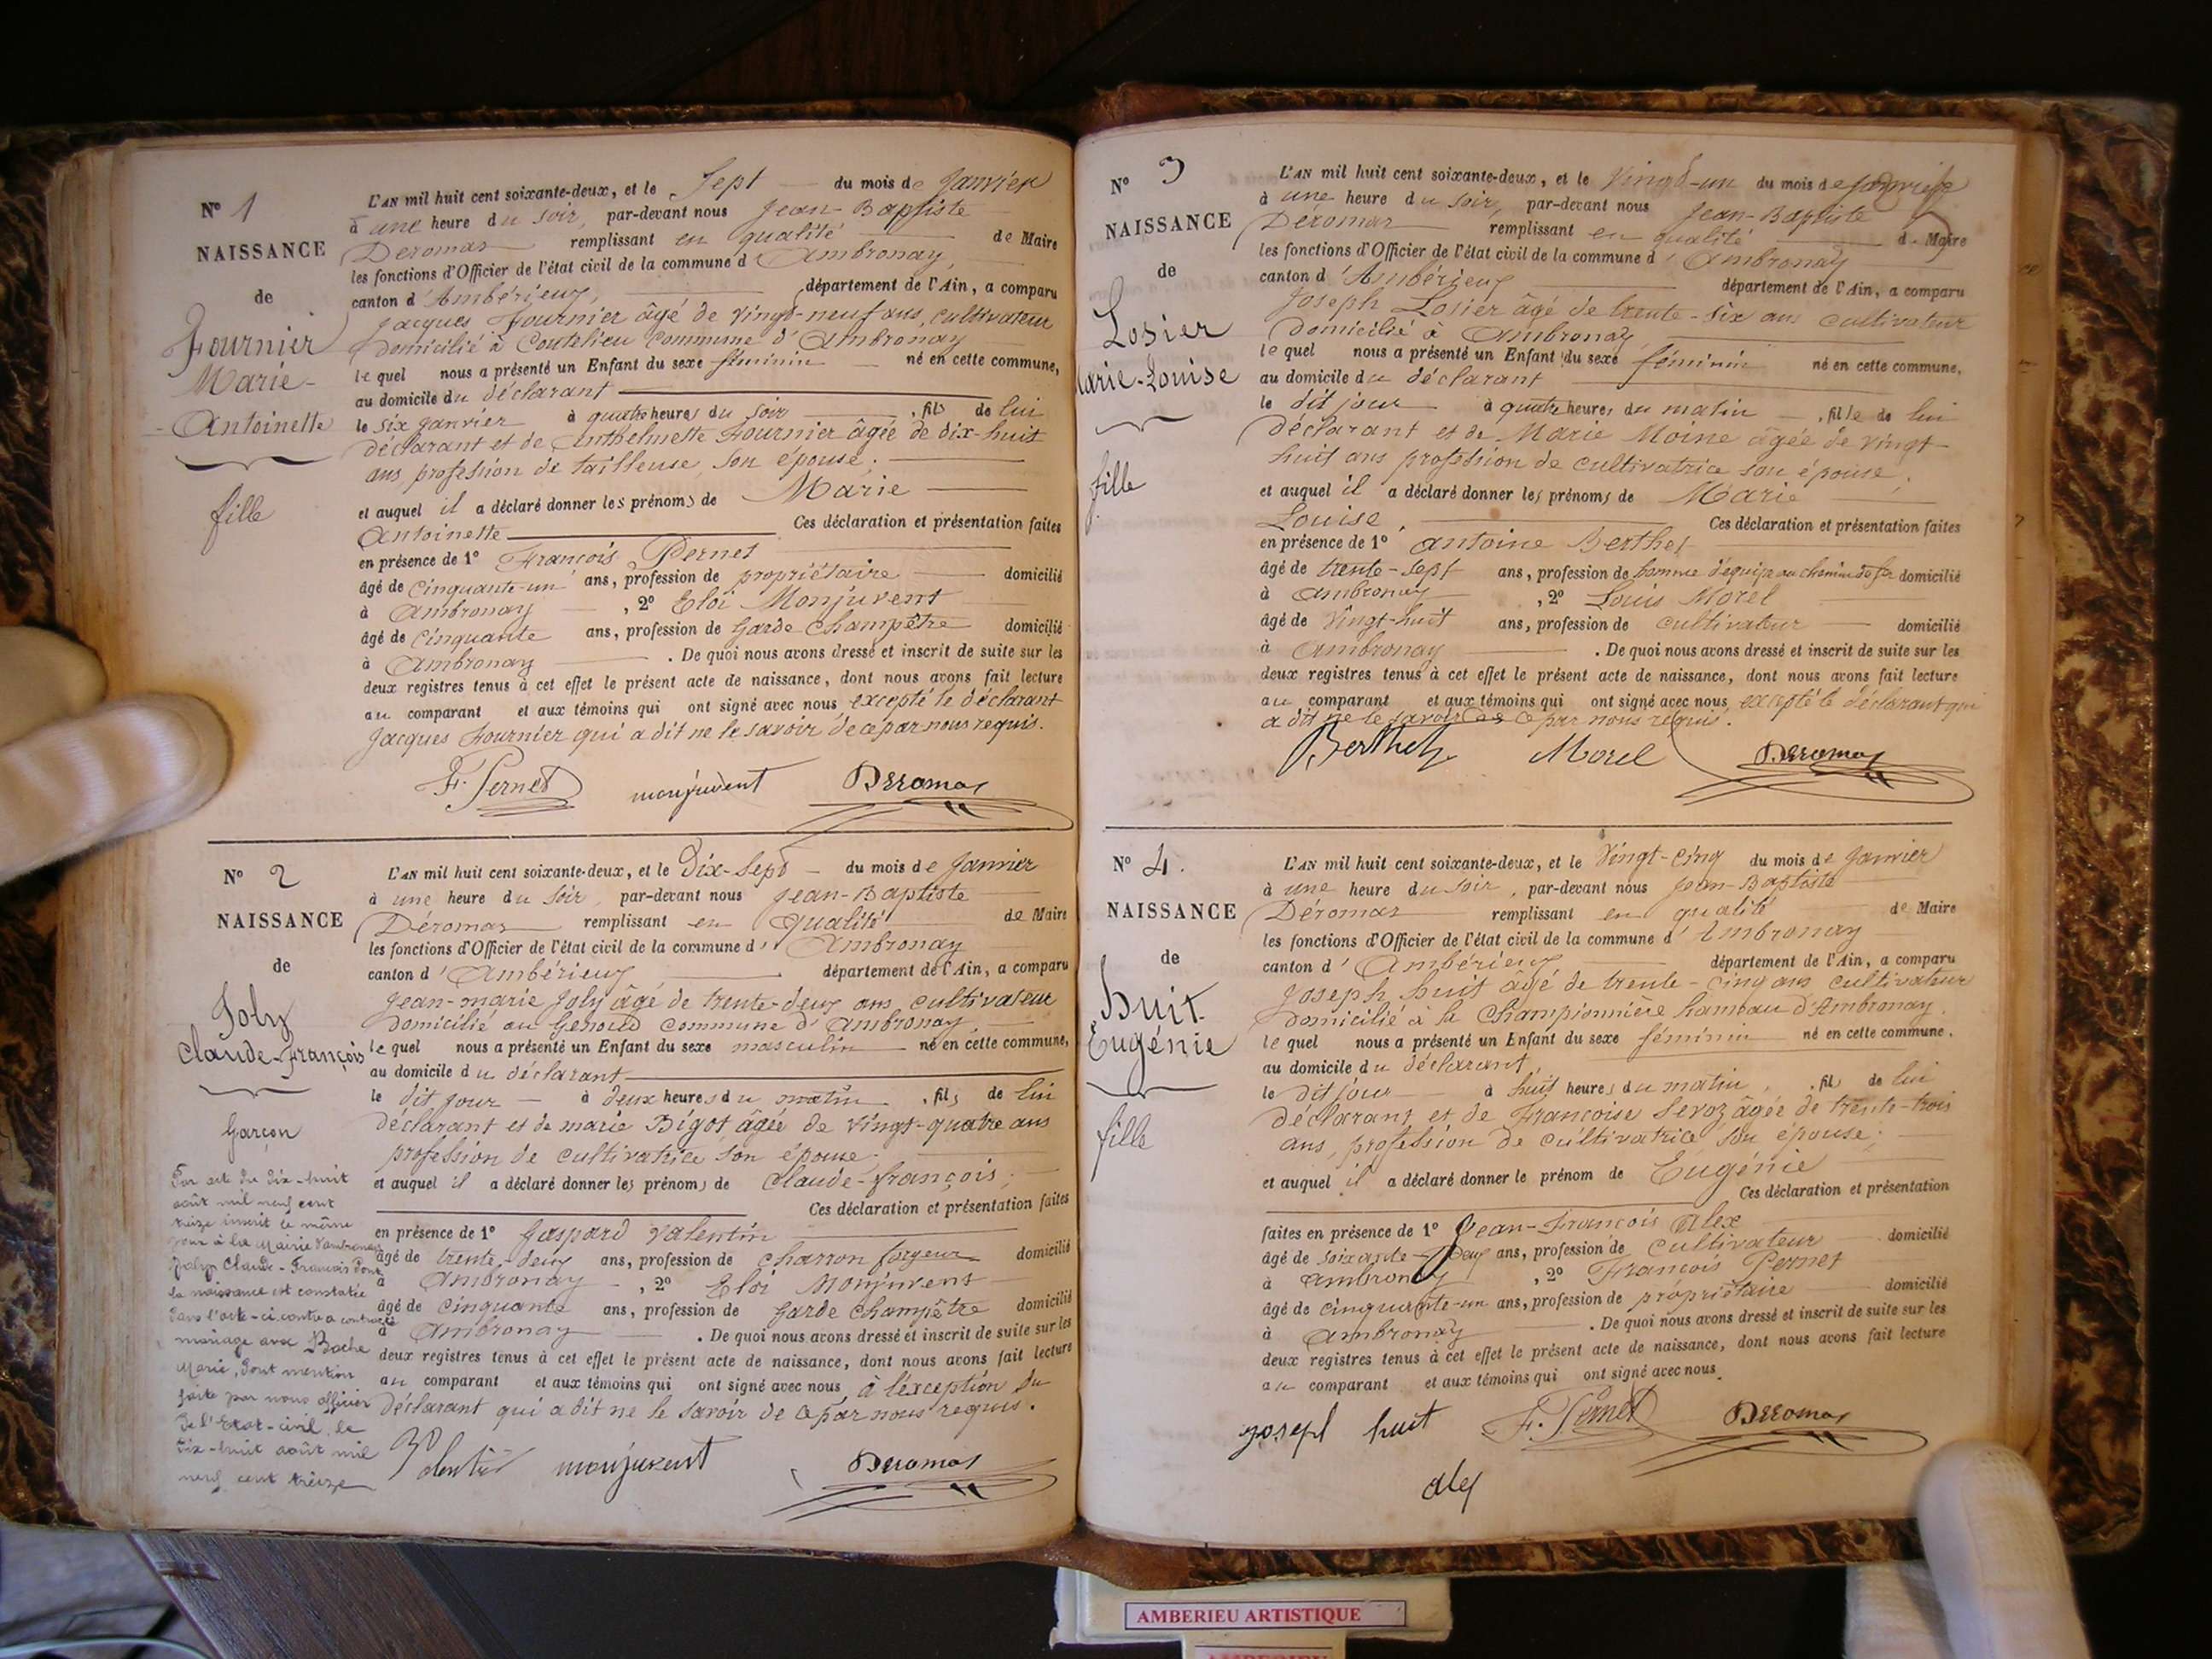 N° 1
NAISSANCE
de
Fournier
Marie-
Antoinette
fille
L'AN mil huit cent soixante-deux, et le Sept du mois de Janvier
à une heure du soir, par-devant nous Jean-Baptiste
Deromas remplissant en qualité de Maire
les fonctions d'Officier de l'état civil de la commune d'Ambronay,
canton d'Ambérieux, département de l'Ain, a comparu
Jacques Fournier âgé de vingt-neuf ans, cultivateur
domicilié à Coutelieu Commune d'Ambronay
lequel nous a présenté un Enfant du sexe féminin né en cette commune,
au domicile du déclarant
le six Janvier à quatre heures du soir, fils de lui
déclarant et de Anthelmette Fournier âgée de dix-huit
ans, profession de tailleuse, son épouse;
et auquel il a déclaré donner les prénoms de Marie
Antoinette Ces déclaration et présentation faites
en présence de 1° François Pernet
âgé de cinquante-un ans, profession de propriétaire domicilié
à Ambronay, 2° Eloi Monjuvent
âgé de cinquante ans, profession de Garde Champêtre domicilié
à Ambronay. De quoi nous avons dressé et inscrit de suite sur les
deux registres tenus à cet effet le présent acte de naissance, dont nous avons fait lecture
au comparant et aux témoins qui ont signé avec nous excepté le déclarant
Jacques Fournier qui a dit ne le savoir de ce par nous requis.
F. Pernet monjuvent Deromas
N° 2
NAISSANCE
de
Joly
Claude-François
garçon
Par acte du dix-huit
août mil neuf cent
treize inscrit le même
jour à la Mairie d'ambronay
Joly Claude-François dont
la naissance est constatée
dans l'acte-ci-contre a contracté
mariage avec Boche
Marie, dont mention
faite par nous officier
de l'Etat-civil, le
dix-huit août mil
neuf cent treize
L'AN mil huit cent soixante-deux, et le Dix-Sept du mois de Janvier
à une heure du soir, par-devant nous Jean-Baptiste
Déromas remplissant en qualité de Maire
les fonctions d'Officier de l'état civil de la commune d'Ambronay
canton d'Ambérieux département de l'Ain, a comparu
Jean-marie Joly âgé de trente-deux ans, cultivateur
domicilié au Genoud commune d'Ambronay
lequel nous a présenté un Enfant du sexe masculin né en cette commune,
au domicile du déclarant
le dit jour à deux heures du matin, fils de lui
déclarant et de marie Bigot âgée de vingt-quatre ans
profession de cultivatrice son épouse;
et auquel il a déclaré donner les prénoms de Claude-françois;
Ces déclaration et présentation faites
en présence de 1° Gaspard Valentin
âgé de trente-deux ans, profession de charron forgeur domicilié
à Ambronay, 2° Eloi Monjuvent
âgé de cinquante ans, profession de garde champêtre domicilié
à Ambronay. De quoi nous avons dressé et inscrit de suite sur les
deux registres tenus à cet effet le présent acte de naissance, dont nous avons fait lecture
au comparant et aux témoins qui ont signé avec nous, à l'exception du
déclarant qui a dit ne le savoir de ce par nous requis.
monjuvent Deromas
N° 3
NAISSANCE
de
Losier
Marie-Louise
fille
L'AN mil huit cent soixante-deux, et le Vingt-un du mois de Janvier
à une heure du soir, par-devant nous Jean-Baptiste
Déromas remplissant en qualité de Maire
les fonctions d'Officier de l'état civil de la commune d'Ambronay
canton d'Ambérieux département de l'Ain, a comparu
Joseph Losier âgé de trente-six ans cultivateur
domicilié à Ambronay
lequel nous a présenté un Enfant du sexe féminin né en cette commune,
au domicile du déclarant
le dit jour à quatre heures du matin, fille de lui
déclarant et de Marie Moine âgée de vingt-
huit ans profession de cultivatrice son épouse;
et auquel il a déclaré donner les prénoms de Marie
Louise. Ces déclaration et présentation faites
en présence de 1° Antoine Berthet
âgé de trente-sept ans, profession de homme d'équipe au chemin de fer domicilié
à Ambronay, 2° Louis Morel
âgé de Vingt-huit ans, profession de cultivateur domicilié
à Ambronay. De quoi nous avons dressé et inscrit de suite sur les
deux registres tenus à cet effet le présent acte de naissance, dont nous avons fait lecture
au comparant et aux témoins qui ont signé avec nous, excepté le déclarant qui
a dit ne le savoir de ce par nous requis.
Berthet Morel Deromas
N° 4.
NAISSANCE
de
huit
Eugénie
fille
L'AN mil huit cent soixante-deux, et le Vingt-cinq du mois de Janvier
à une heure du soir, par-devant nous Jean-Baptiste
Déromas remplissant en qualité de Maire
les fonctions d'Officier de l'état civil de la commune d'Ambronay
canton d'Ambérieux département de l'Ain, a comparu
Joseph huit âgé de trente-cinq ans cultivateur
domicilié à la Championnière hameau d'Ambronay.
lequel nous a présenté un Enfant du sexe féminin né en cette commune.
au domicile du déclarant,
le dit jour à huit heures du matin, fils de lui
déclarant et de Françoise Sevoz âgée de trente-trois
ans, profession de cultivatrice son épouse;
et auquel il a déclaré donner le prénom de Eugénie
Ces déclaration et présentation
faites en présence de 1° Jean-François Alex
âgé de soixante-deux ans, profession de cultivateur domicilié
à Ambronay, 2° François Pernet
âgé de cinquante-un ans, profession de propriétaire domicilié
à Ambronay. De quoi nous avons dressé et inscrit de suite sur les
deux registres tenus à cet effet le présent acte de naissance, dont nous avons fait lecture
au comparant et aux témoins qui ont signé avec nous.
joseph huit F. Pernet Deromas
alex
AMBERIEU ARTISTIQUE
AMBERIEU